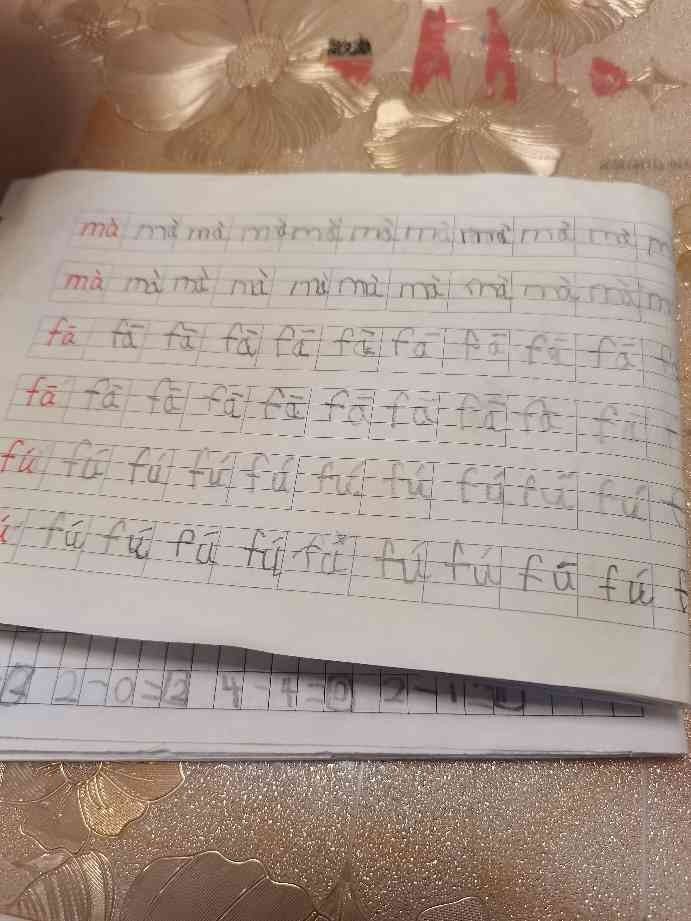 mà mà mà mà mà mà mà mà mà mà
mà mà mà mà mà mà mà mà mà mà
fā fā fā fā fā fā fā fā fā fā
fā fā fā fā fā fā fā fā fā fā
fú fú fú fú fú fú fú fú fú fú
fú fú fú fú fú fú fú fū fú
2-0=2 4-4=0 2-1=